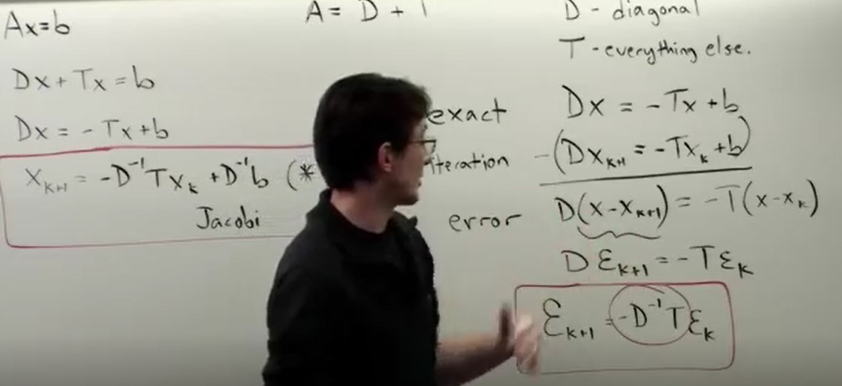 Ax=b
Dx+Tx=b
Dx = -Tx+b
x_{k+1} = -D^{-1}Tx_k + D^{-1}b (*
Jacobi
A = D +
D - diagonal
T - everything else.
exact Dx = -Tx +b
iteration -(Dx_{k+1} = -Tx_k +b)
error D(x-x_{k+1}) = -T(x-x_k)
Dε_{k+1} = -Tε_k
ε_{k+1} = -D^{-1}Tε_k